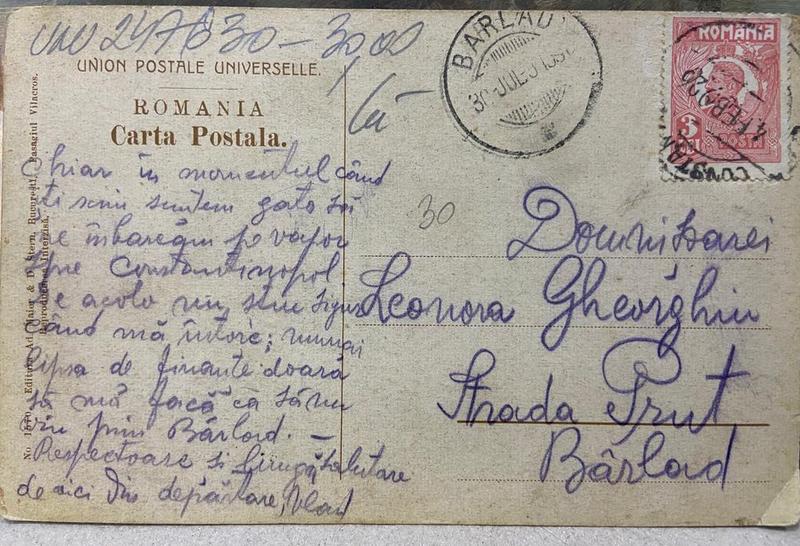 247630-3000
UNION POSTALE UNIVERSELLE.
ROMANIA
Carta Postala.
BARLAD
30 JUL
ROMÂNIA
3
LEI
POSTA
30
Chiar în momentul când
ți scriu suntem gata să
ne îmbarcăm pe vapor
spre Constantinopol
De acolo nu știu sigur
când mă întorc; numai
lipsa de finanțe doară
să mă facă ca să nu
viu prin Bârlad. —
Respectoase si salutare
de aici din depărtare, Vlad
Domnisoarei
Leonora Gheorghiu
Strada Prut
Bârlad
Editura Ad. Maier & D. Stern, Bucuresti, Pasagiul Vilacros.
Reproducerea interzisă.